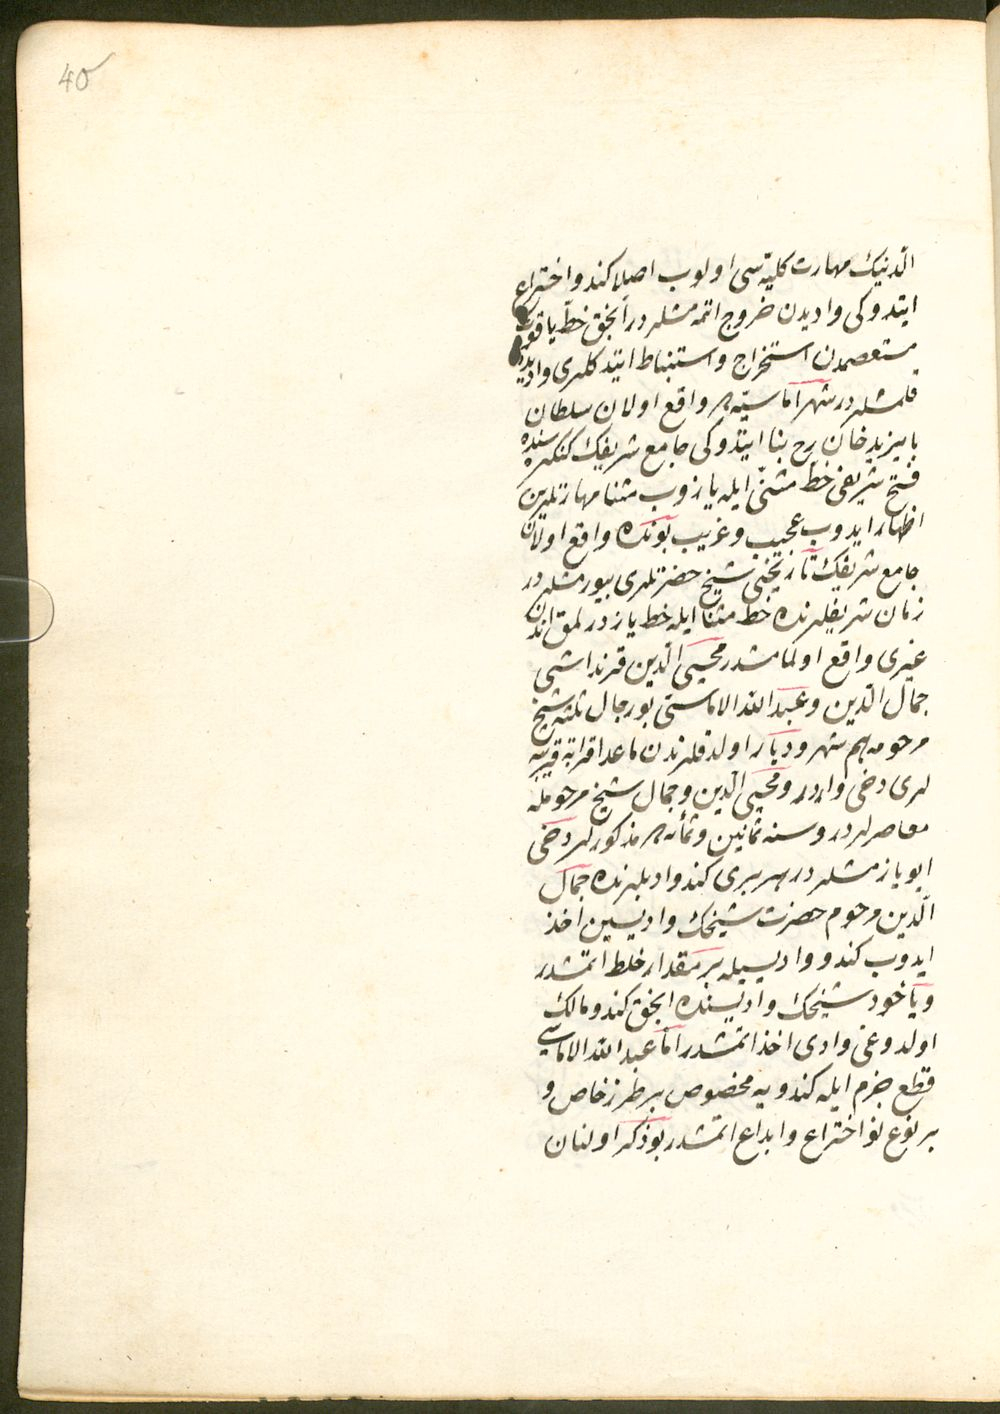 40
الدینك مهارت كلیه‌سی اولوب اصلا كندو اختراع
ایتدوكی وادیدن خروج اتمه‌مشلردر انجق خط یاقوت
مستعصمدن استخراج و استنباط ایتدكلری وادیده
قلمشلردر شهر اماسیّه‌ده واقع اولان سلطان
بایزید خان رح بنا ایتدوكی جامع شریفك كنكره‌سنده
فتح شریفی خط مثنّی ایله یازوب مثنا مهارتلرین
اظهار ایدوب عجیب و غریب بونده واقع اولان
جامع شریفك تاریخنی شیخ حضرتلری بیورمشلردر
زمان شریفلرنده خط مثنا ایله خط یازدرلمق اندن
غیری واقع اولمامشدر محیی الدین قرنداشی
جمال الدین و عبد الله الاماسی بو رجال ثلثه شیخ
مرحومه هم شهر و دیار اولدقلرندن ماعدا قرابه قریبه
لری دخی واردر و محیی الدین و جمال شیخ مرحومله
معاصرلردر و سنه ثمانین و ثمأنه‌ده مذكورلر دخی
ایو یازمشلردر هر بری كندو ادبلرنده جمال
الدین مرحوم حضرت شیخك وادیسین اخذ
ایدوب كندو وادیسیله بر مقدار خلط اتمشدر
و یاخود شیخك وادیسنده انجق كندو مالك
اولدوغی وادی اخذ اتمشدر اما عبد الله الاماسی
قطع جزم ایله كندویه مخصوص بر طرز خاص و
بر نوع نو اختراع و ابداع اتمشدر بو ذكر اولنان